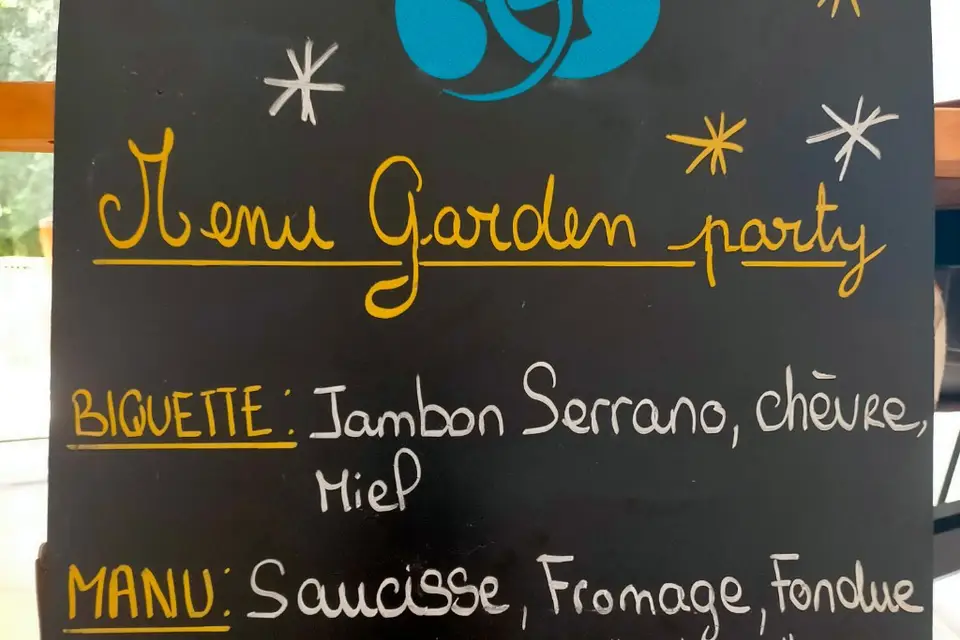 Menu Garden party
BIQUETTE: Jambon Serrano, chèvre,
Miel
MANU: Saucisse, Fromage, Fondue